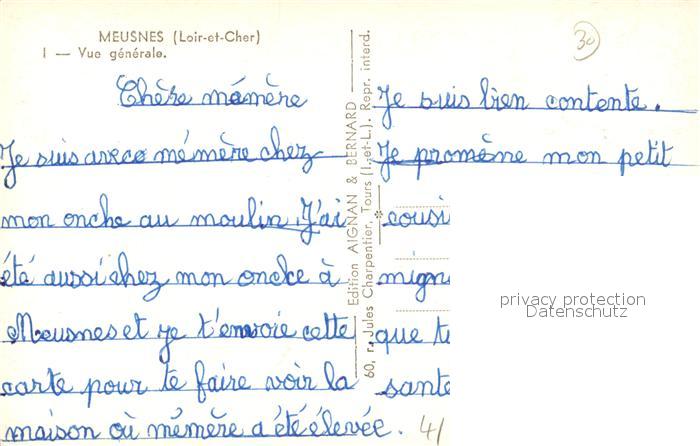 MEUSNES (Loir-et-Cher)
1 — Vue générale.
30
Chère mémère
Je suis avec mémère chez
mon oncle au moulin. J'ai
été aussi chez mon oncle à
Meusnes et je t'envoie cette
carte pour te faire voir la
maison où mémère a été élevée.
41
Edition AIGNAN & BERNARD
60, r. Jules Charpentier, Tours (I.-et-L.). Repr. interd.
Je suis bien contente.
Je promène mon petit
cousi
mign
que t
sante
privacy protection
Datenschutz